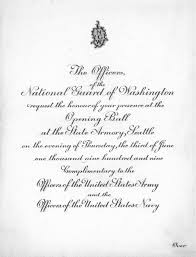 The Officers
of the
National Guard of Washington
request the honour of your presence at the
Opening Ball
at the State Armory, Seattle
on the evening of Thursday, the third of June
one thousand nine hundred and nine
Complimentary to the
Officers of the United States Army
and the
Officers of the United States Navy
Over